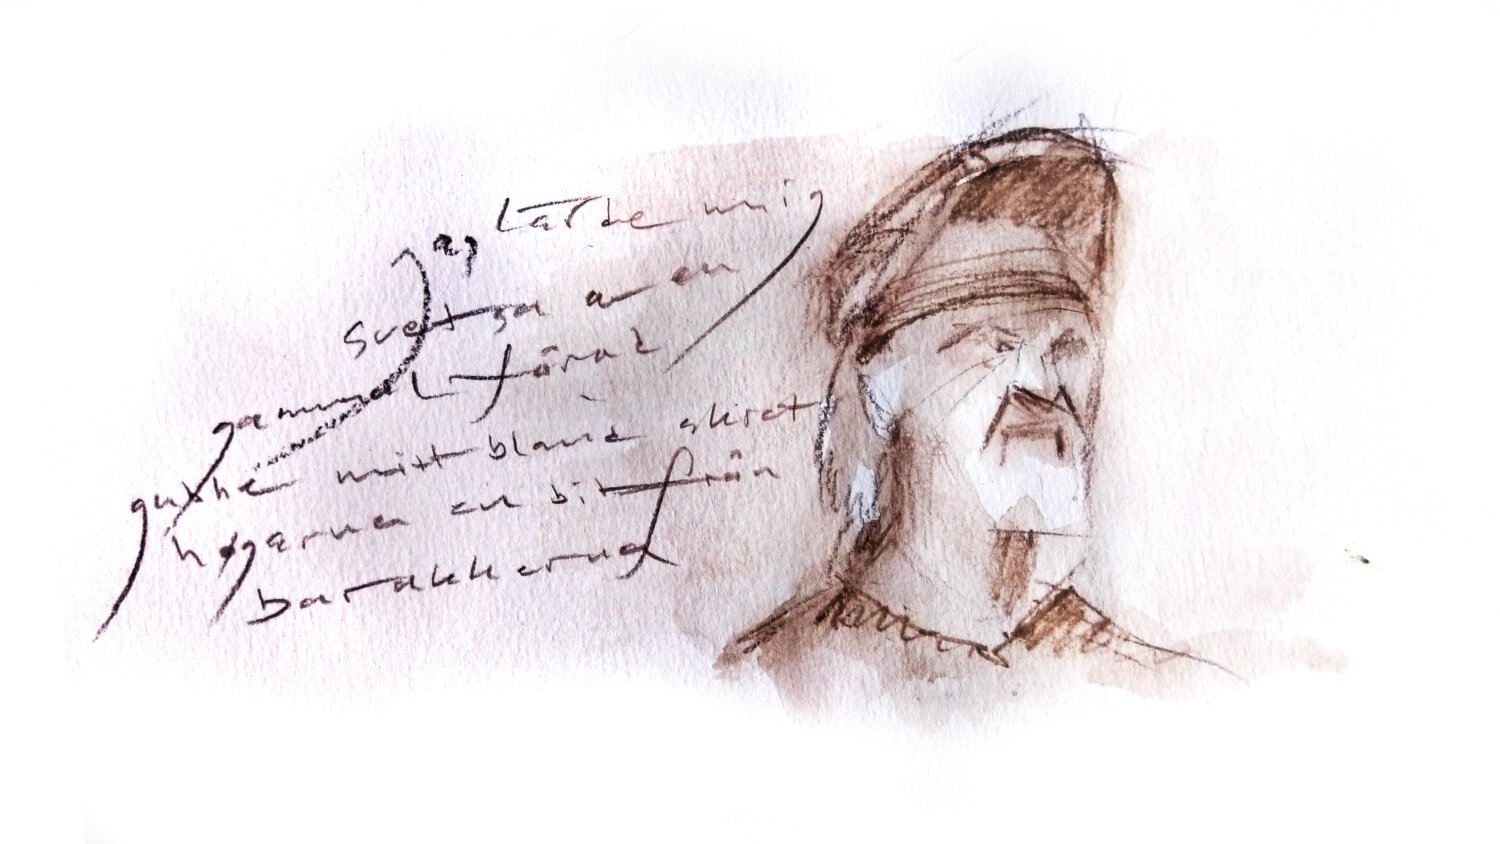 Jag lärde mig
svetsa av en
gammal fårad
gubbe mitt bland skrot
högarna en bit från
barakkerna